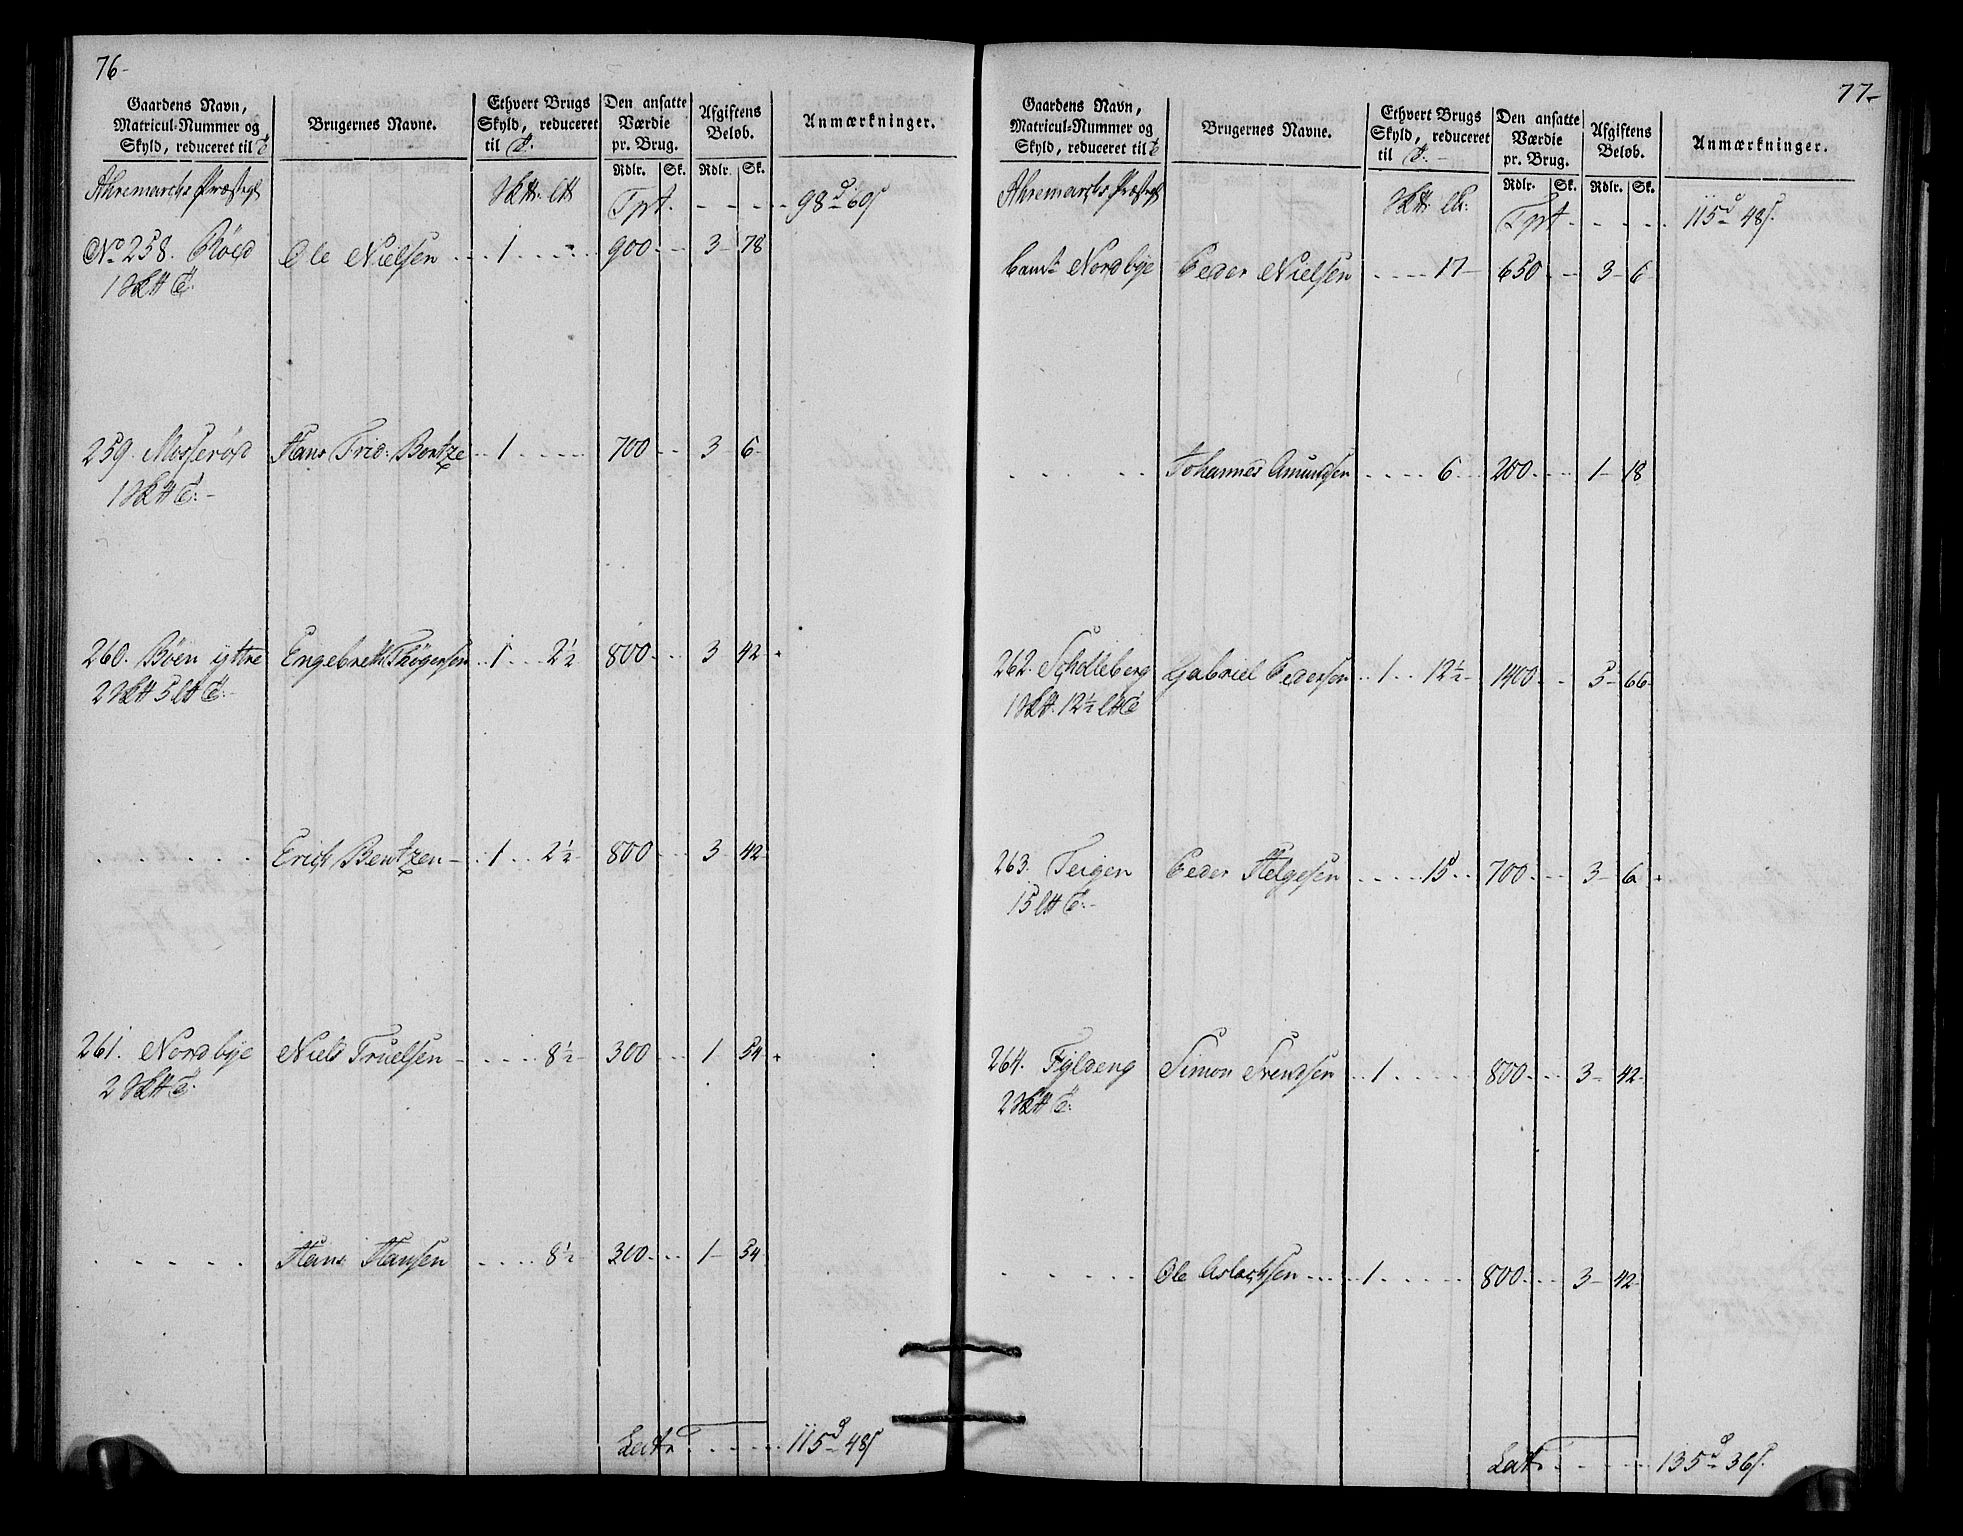 76-
Gaardens Navn, Matricul-Nummer og Skyld, reduceret til T
Brugernes Navne.
Ethvert Brugs Skyld, reduceret til T.
Den ansatte Værdie pr. Brug.
Afgiftens Beløb.
Anmærkninger.
Rdlr. Sk. Rdlr. Sk.
Ahremarchs Præstegl
Tpt. - - - - - 98 d 60 s
No 258. Röed Ole Nielsen 1 900 3 78
1 T.
259. Mosserød Hans Frid: Bentze 1 700 3 6
1 T. -
260. Böen yttre Engebreth Thögersen 1 2½ 800 3 42
2 5 T. -
Erich Bentzen 1 2½ 800 3 42
261. Nordbye Niels Truelsen 8½ 300 1 54
2 T.
Hans Hansen 8½ 300 1 54
Lat. 115 d 48 s
77-
Gaardens Navn, Matricul-Nummer og Skyld, reduceret til T
Brugernes Navne.
Ethvert Brugs Skyld, reduceret til T. -
Den ansatte Værdie pr. Brug.
Afgiftens Beløb.
Anmærkninger.
Rdlr. Sk. Rdlr. Sk.
Ahremarchs Præstegl
Tpt. - - - - - 115 d 48 s.
Nordbye Peder Nielsen 17 650 3 6
Johannes Amundsen 6 200 1 18
262. Scholleberg Gabriel Pedersen 1 12½ 1400 5 66
1 12½ T
263. Teigen Peder Helgesen 15 700 3 6
15 T. -
264. Fyldeng Simon Svendsen 1 800 3 42
2 T.
Ole Aslachsen 1 800 3 42
Lat. 135 d 36 s.